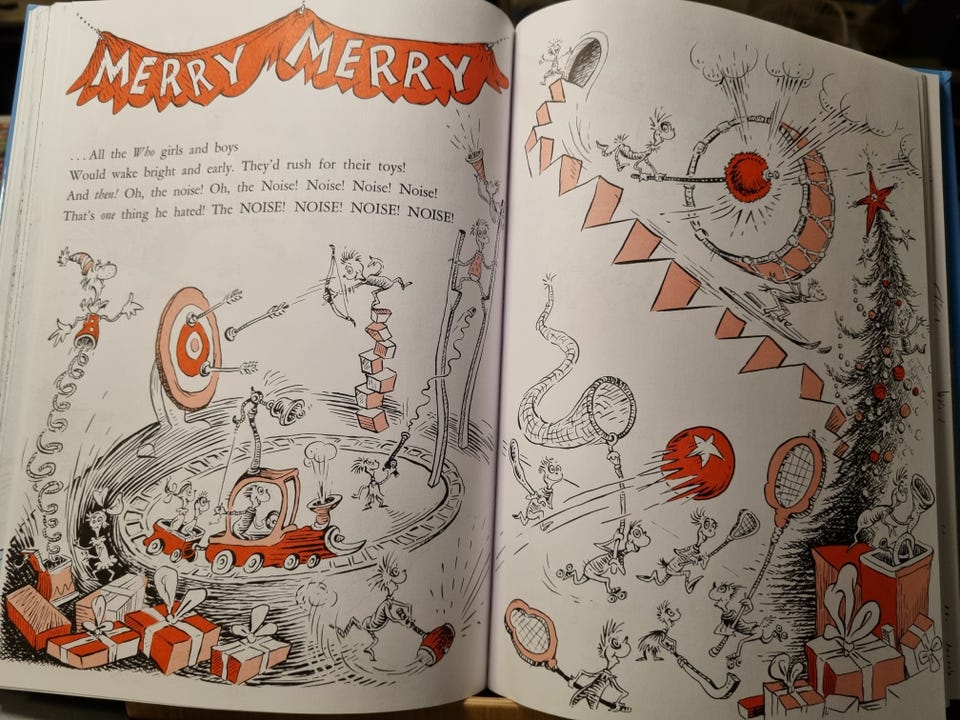 MERRY MERRY
...All the Who girls and boys
Would wake bright and early. They'd rush for their toys!
And then! Oh, the noise! Oh, the Noise! Noise! Noise! Noise!
That's one thing he hated! The NOISE! NOISE! NOISE! NOISE!